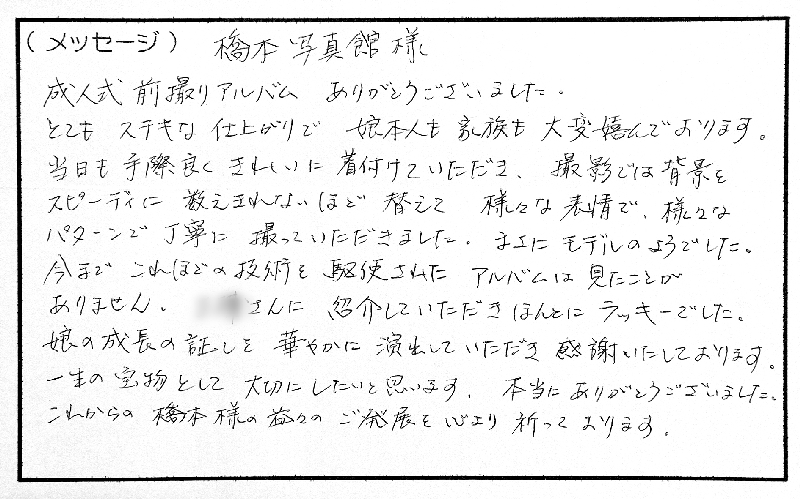 (メッセージ) 橋本写真館様
成人式 前撮りアルバム ありがとうございました。
とても ステキな 仕上がりで 娘本人も 家族も 大変嬉んでおります。
当日も 手際良く きれいに 着付けていただき、撮影では 背景を
スピーディに 数えきれないほど 替えて 様々な 表情で、様々な
パターンで 丁寧に 撮っていただきました。まさに モデルのようでした。
今まで これほどの 技術を 駆使された アルバムは 見たことが
ありません。 さんに 紹介していただき ほんとに ラッキーでした。
娘の成長の 証しを 華やかに 演出していただき 感謝いたしております。
一生の宝物として 大切にしたいと思います。 本当に ありがとうございました。
これからの 橋本様の 益々の ご発展を 心より 祈っております。